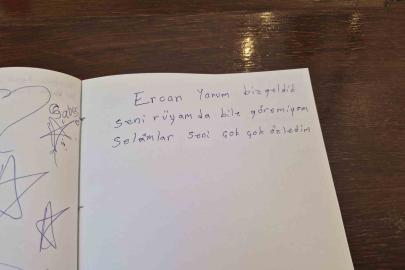 Ercan Yanım biz geldik
seni rüyamda bile göremiyom
Selâmlar seni çok çok özledim